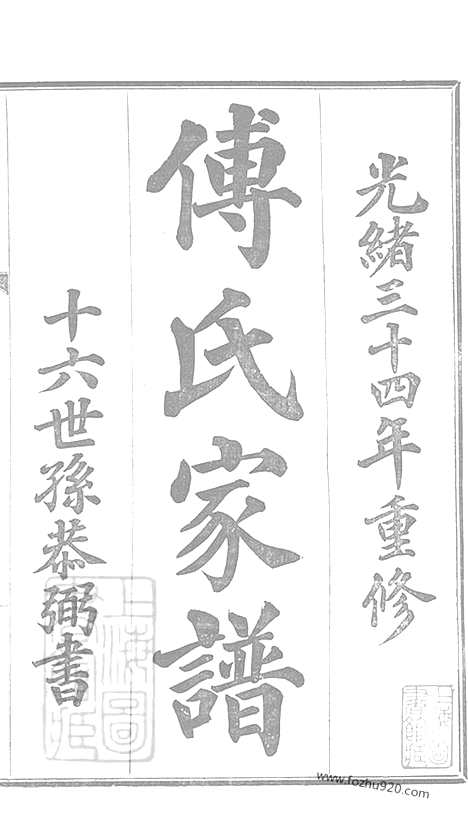 光緒三十四年重修
傅氏家譜
十六世孫恭弼書
上海圖書館藏
www.fozhu920.com